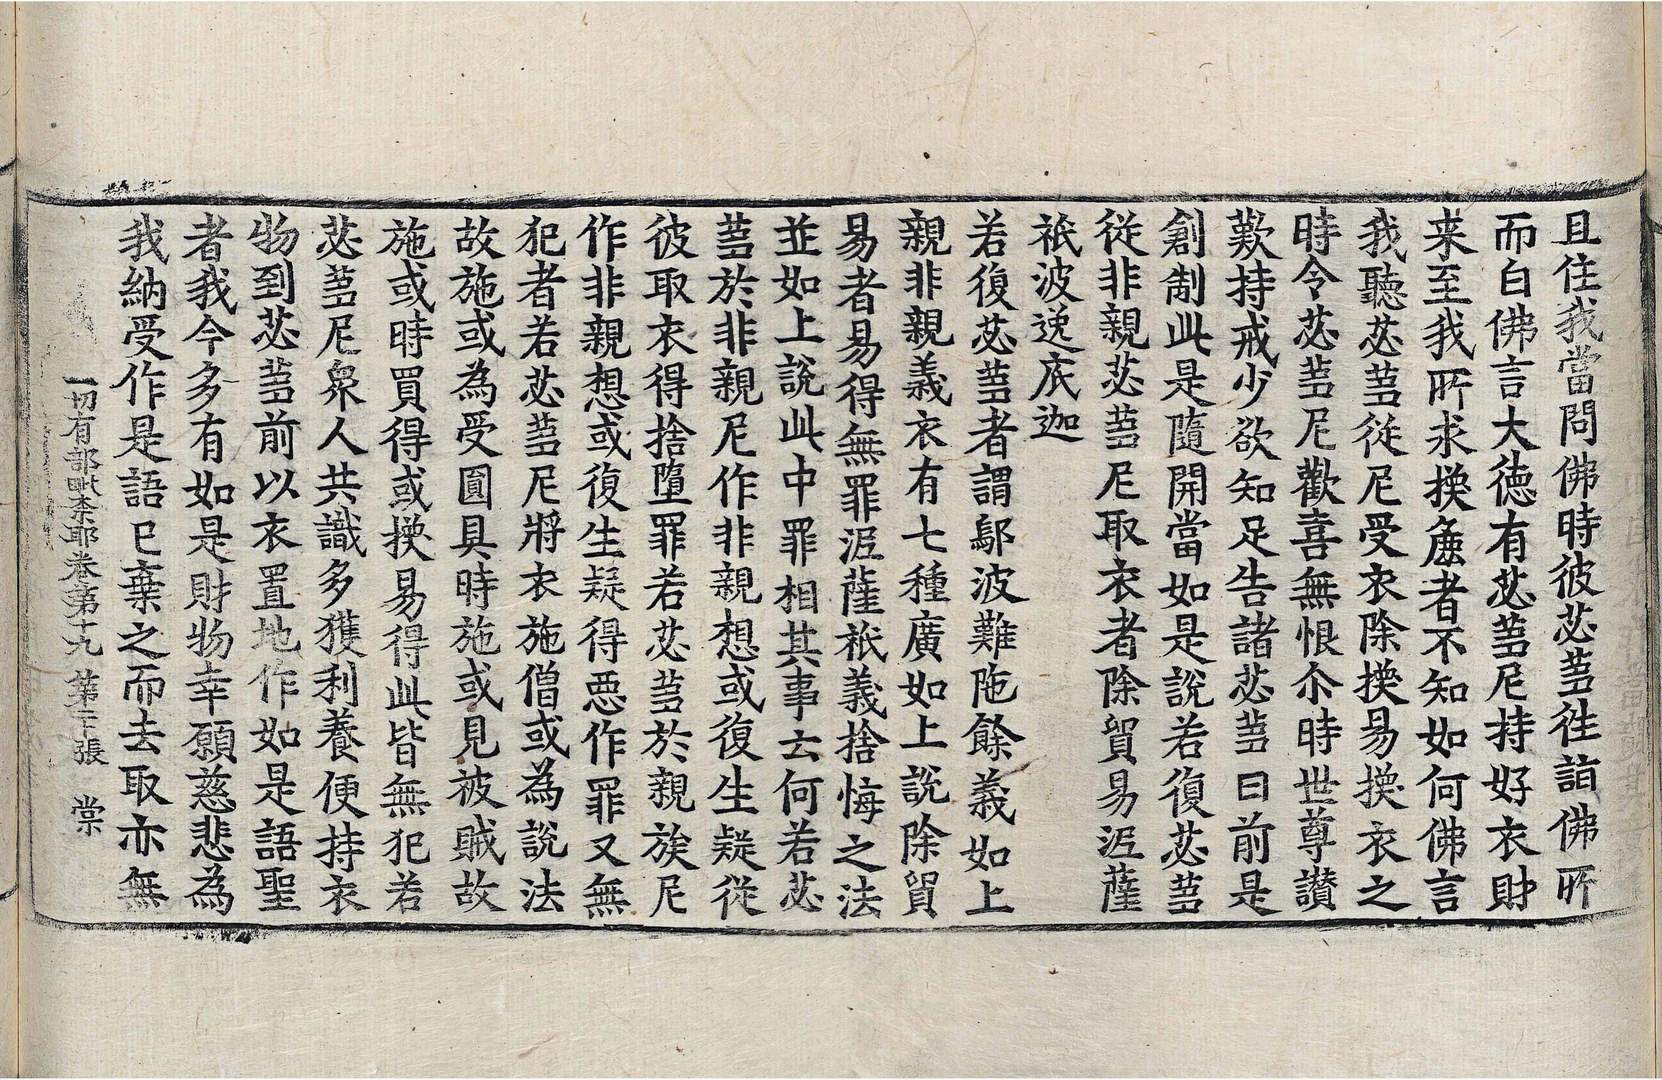 且住我當問佛時彼苾芻往詣佛所
而白佛言大徳有苾芻尼持好衣財
来至我所求換麁者不知如何佛言
我聽苾芻從尼受衣除換易換衣之
時令苾芻尼歡喜無恨尒時世尊讃
歎持戒少欲知足告諸苾芻曰前是
創制此是隨開當如是說若復苾芻
從非親苾芻尼取衣者除貿易泥薩
祇波逸底迦
若復苾芻者謂鄔波難陁餘義如上
親非親義衣有七種廣如上說除貿
易者易得無罪泥薩祇義捨悔之法
並如上說此中罪相其事云何若苾
芻於非親尼作非親想或復生疑從
彼取衣得捨墮罪若苾芻於親族尼
作非親想或復生疑得惡作罪又無
犯者若苾芻尼將衣施僧或為說法
故施或為受圓具時施或見被賊故
施或時買得或換易得此皆無犯若
苾芻尼衆人共識多獲利養便持衣
物到苾芻前以衣置地作如是語聖
者我今多有如是財物幸願慈悲為
我納受作是語已棄之而去取亦無
一切有部毗柰耶卷第十九 第二十張 棠